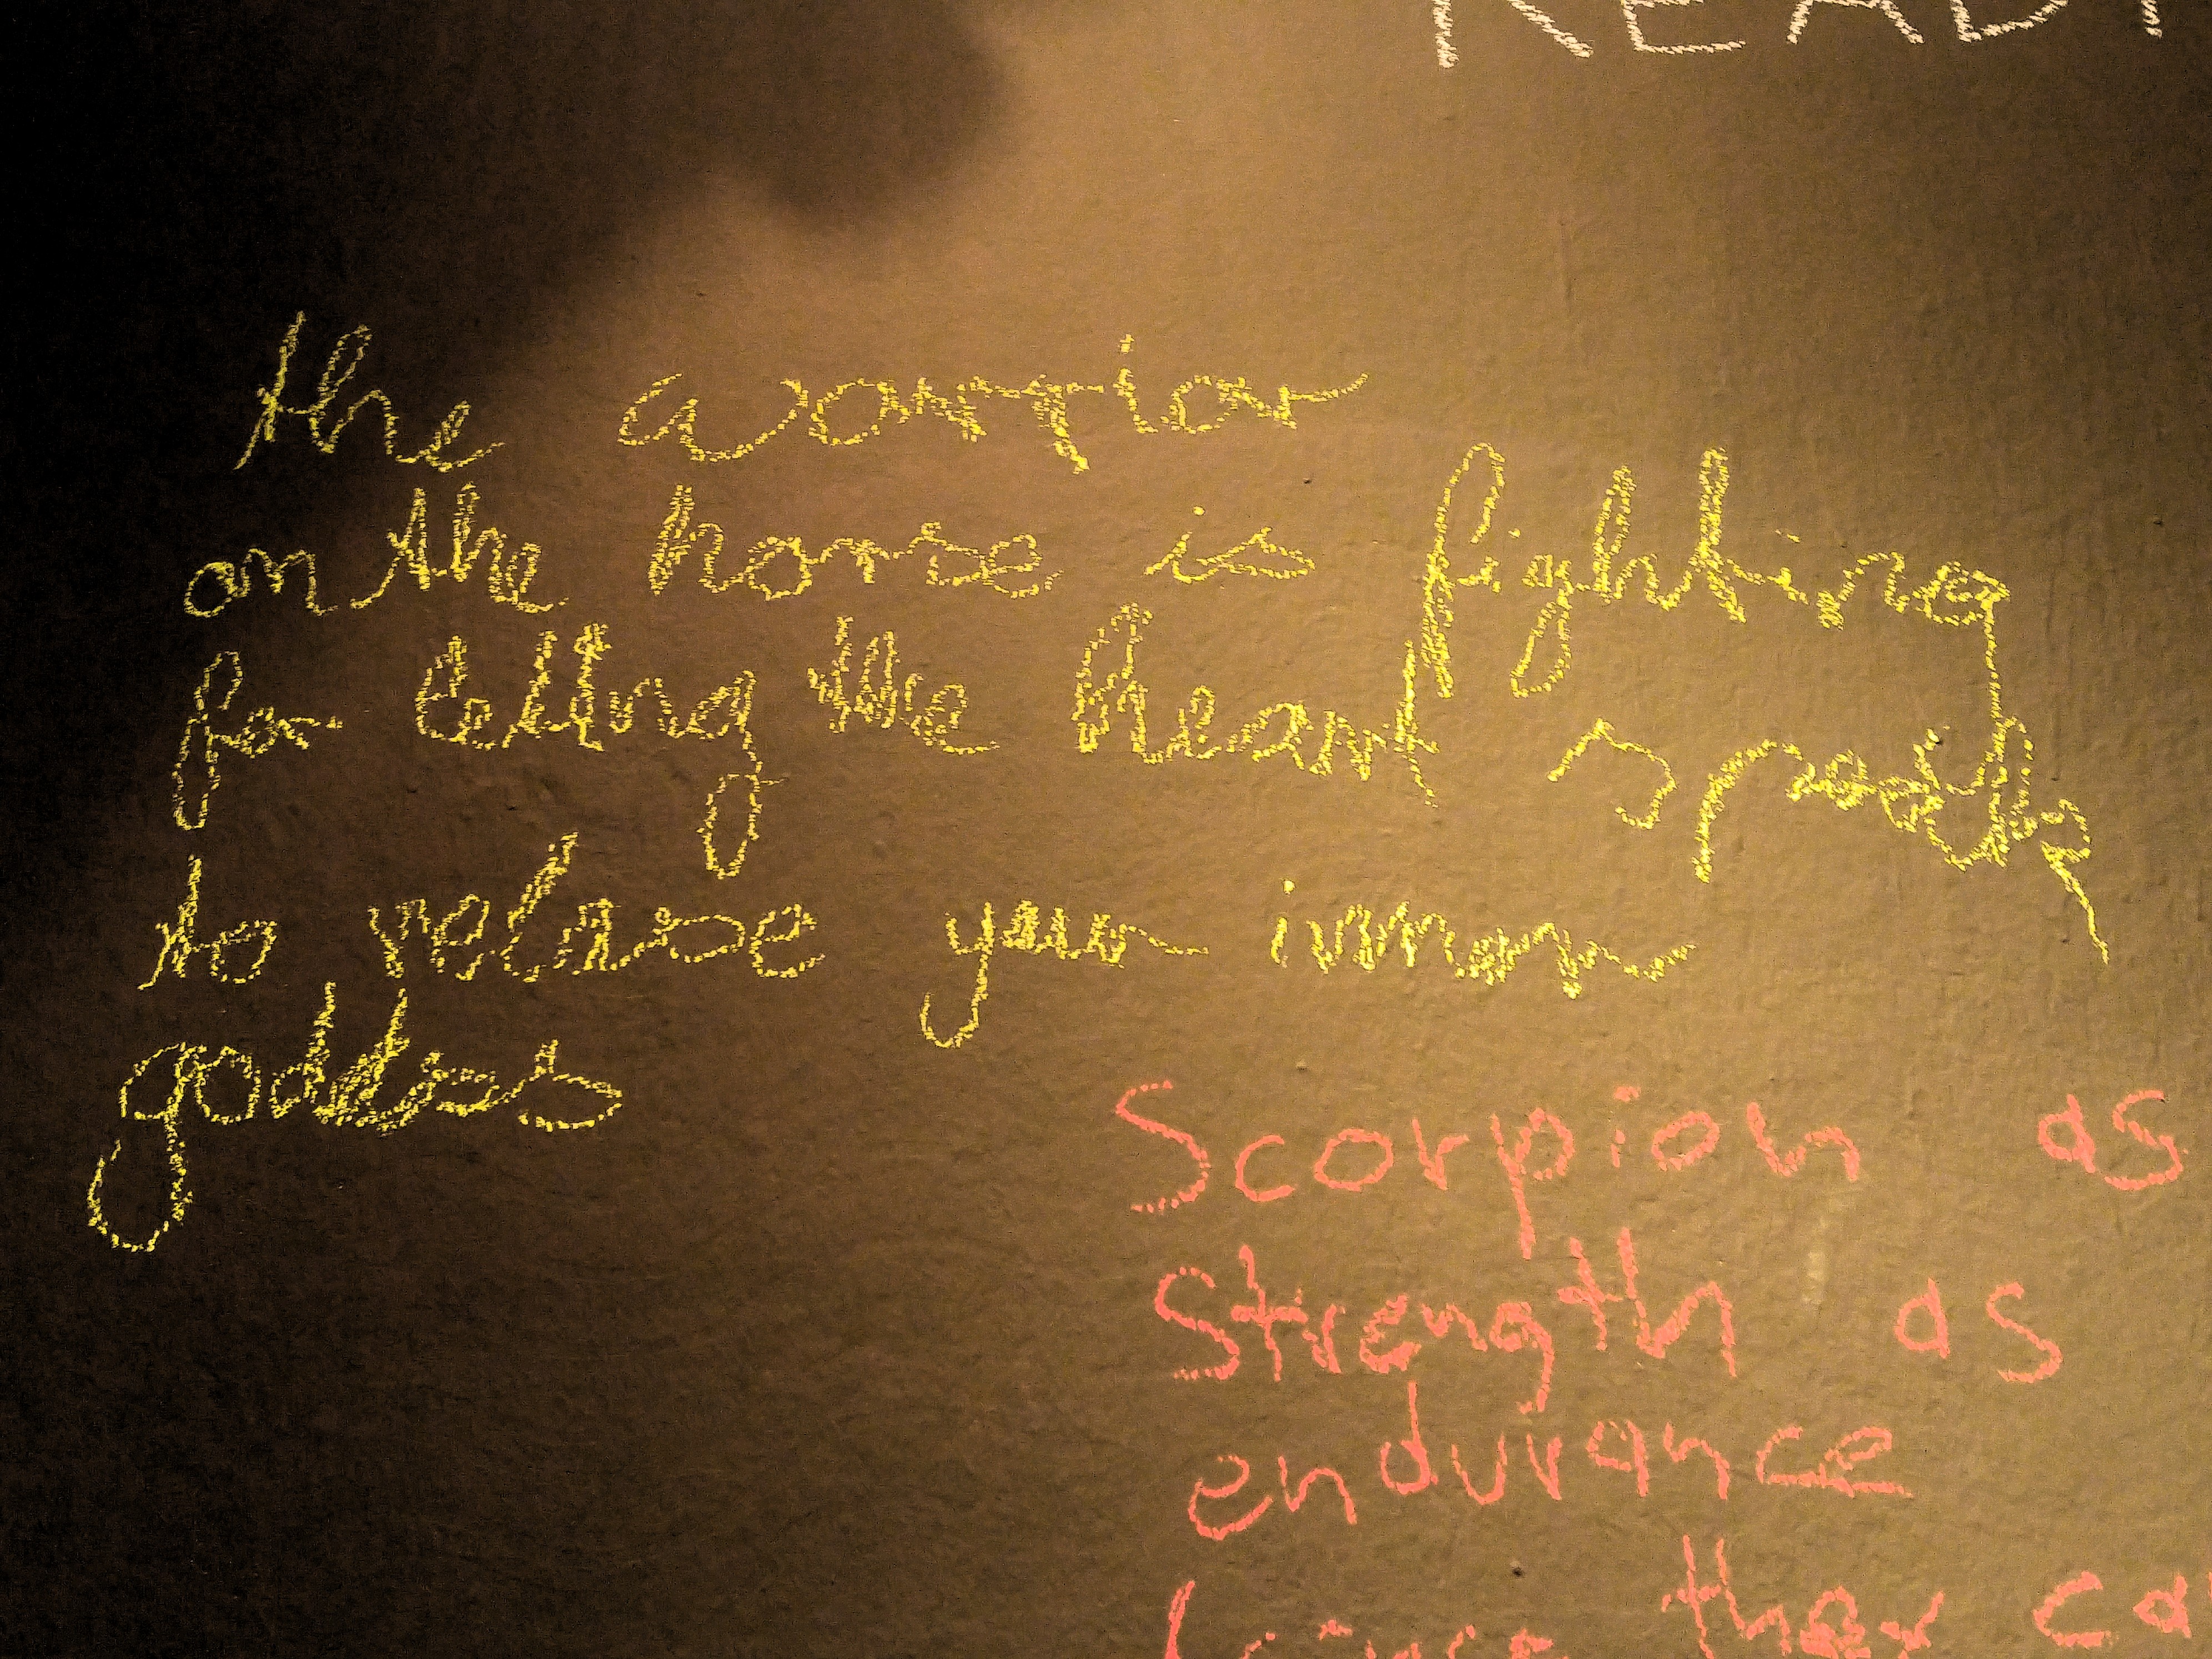 READY
the worrior
on the horse is fighting
for letting the heart
to relase your innar
goddess
Scorpion as
Strength as
endurance
they ca